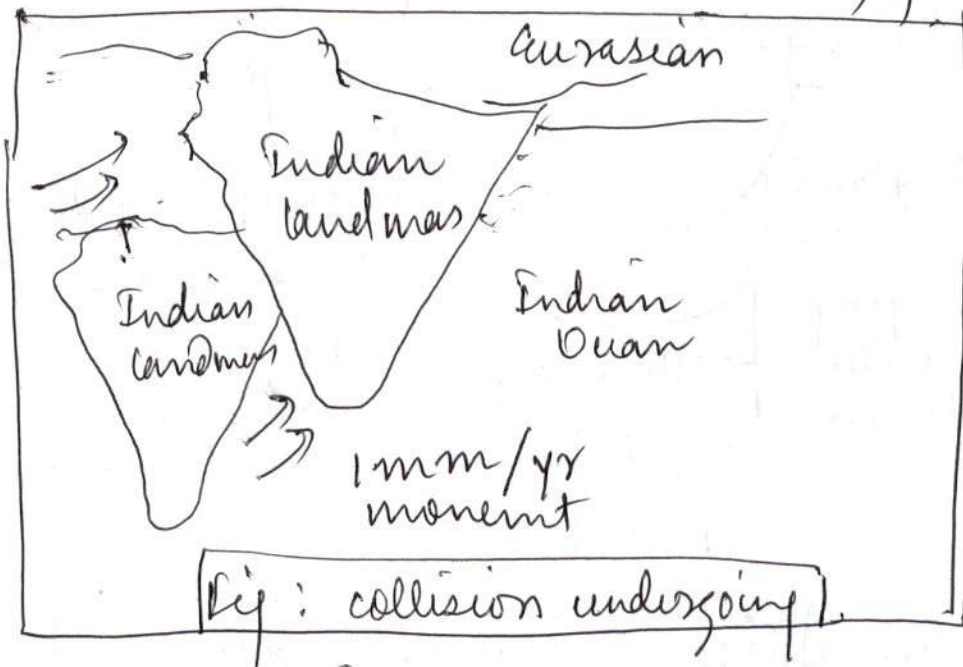 Eurasian
Indian
landmas
Indian
landmas
Indian
Ocean
1mm/yr
movemnt
Fig : collision undergoing